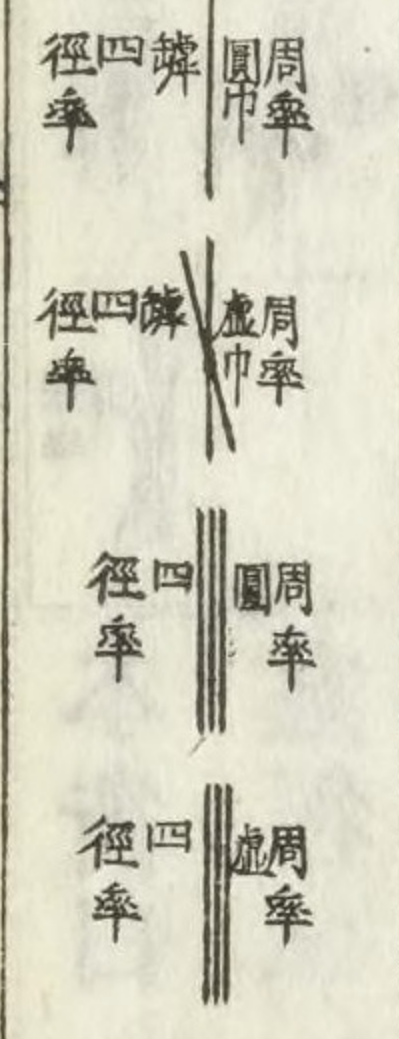 周率
圓巾
罅
四
徑率
周率
虚巾
罅
四
徑率
周率
圓
四
徑率
周率
虚
四
徑率